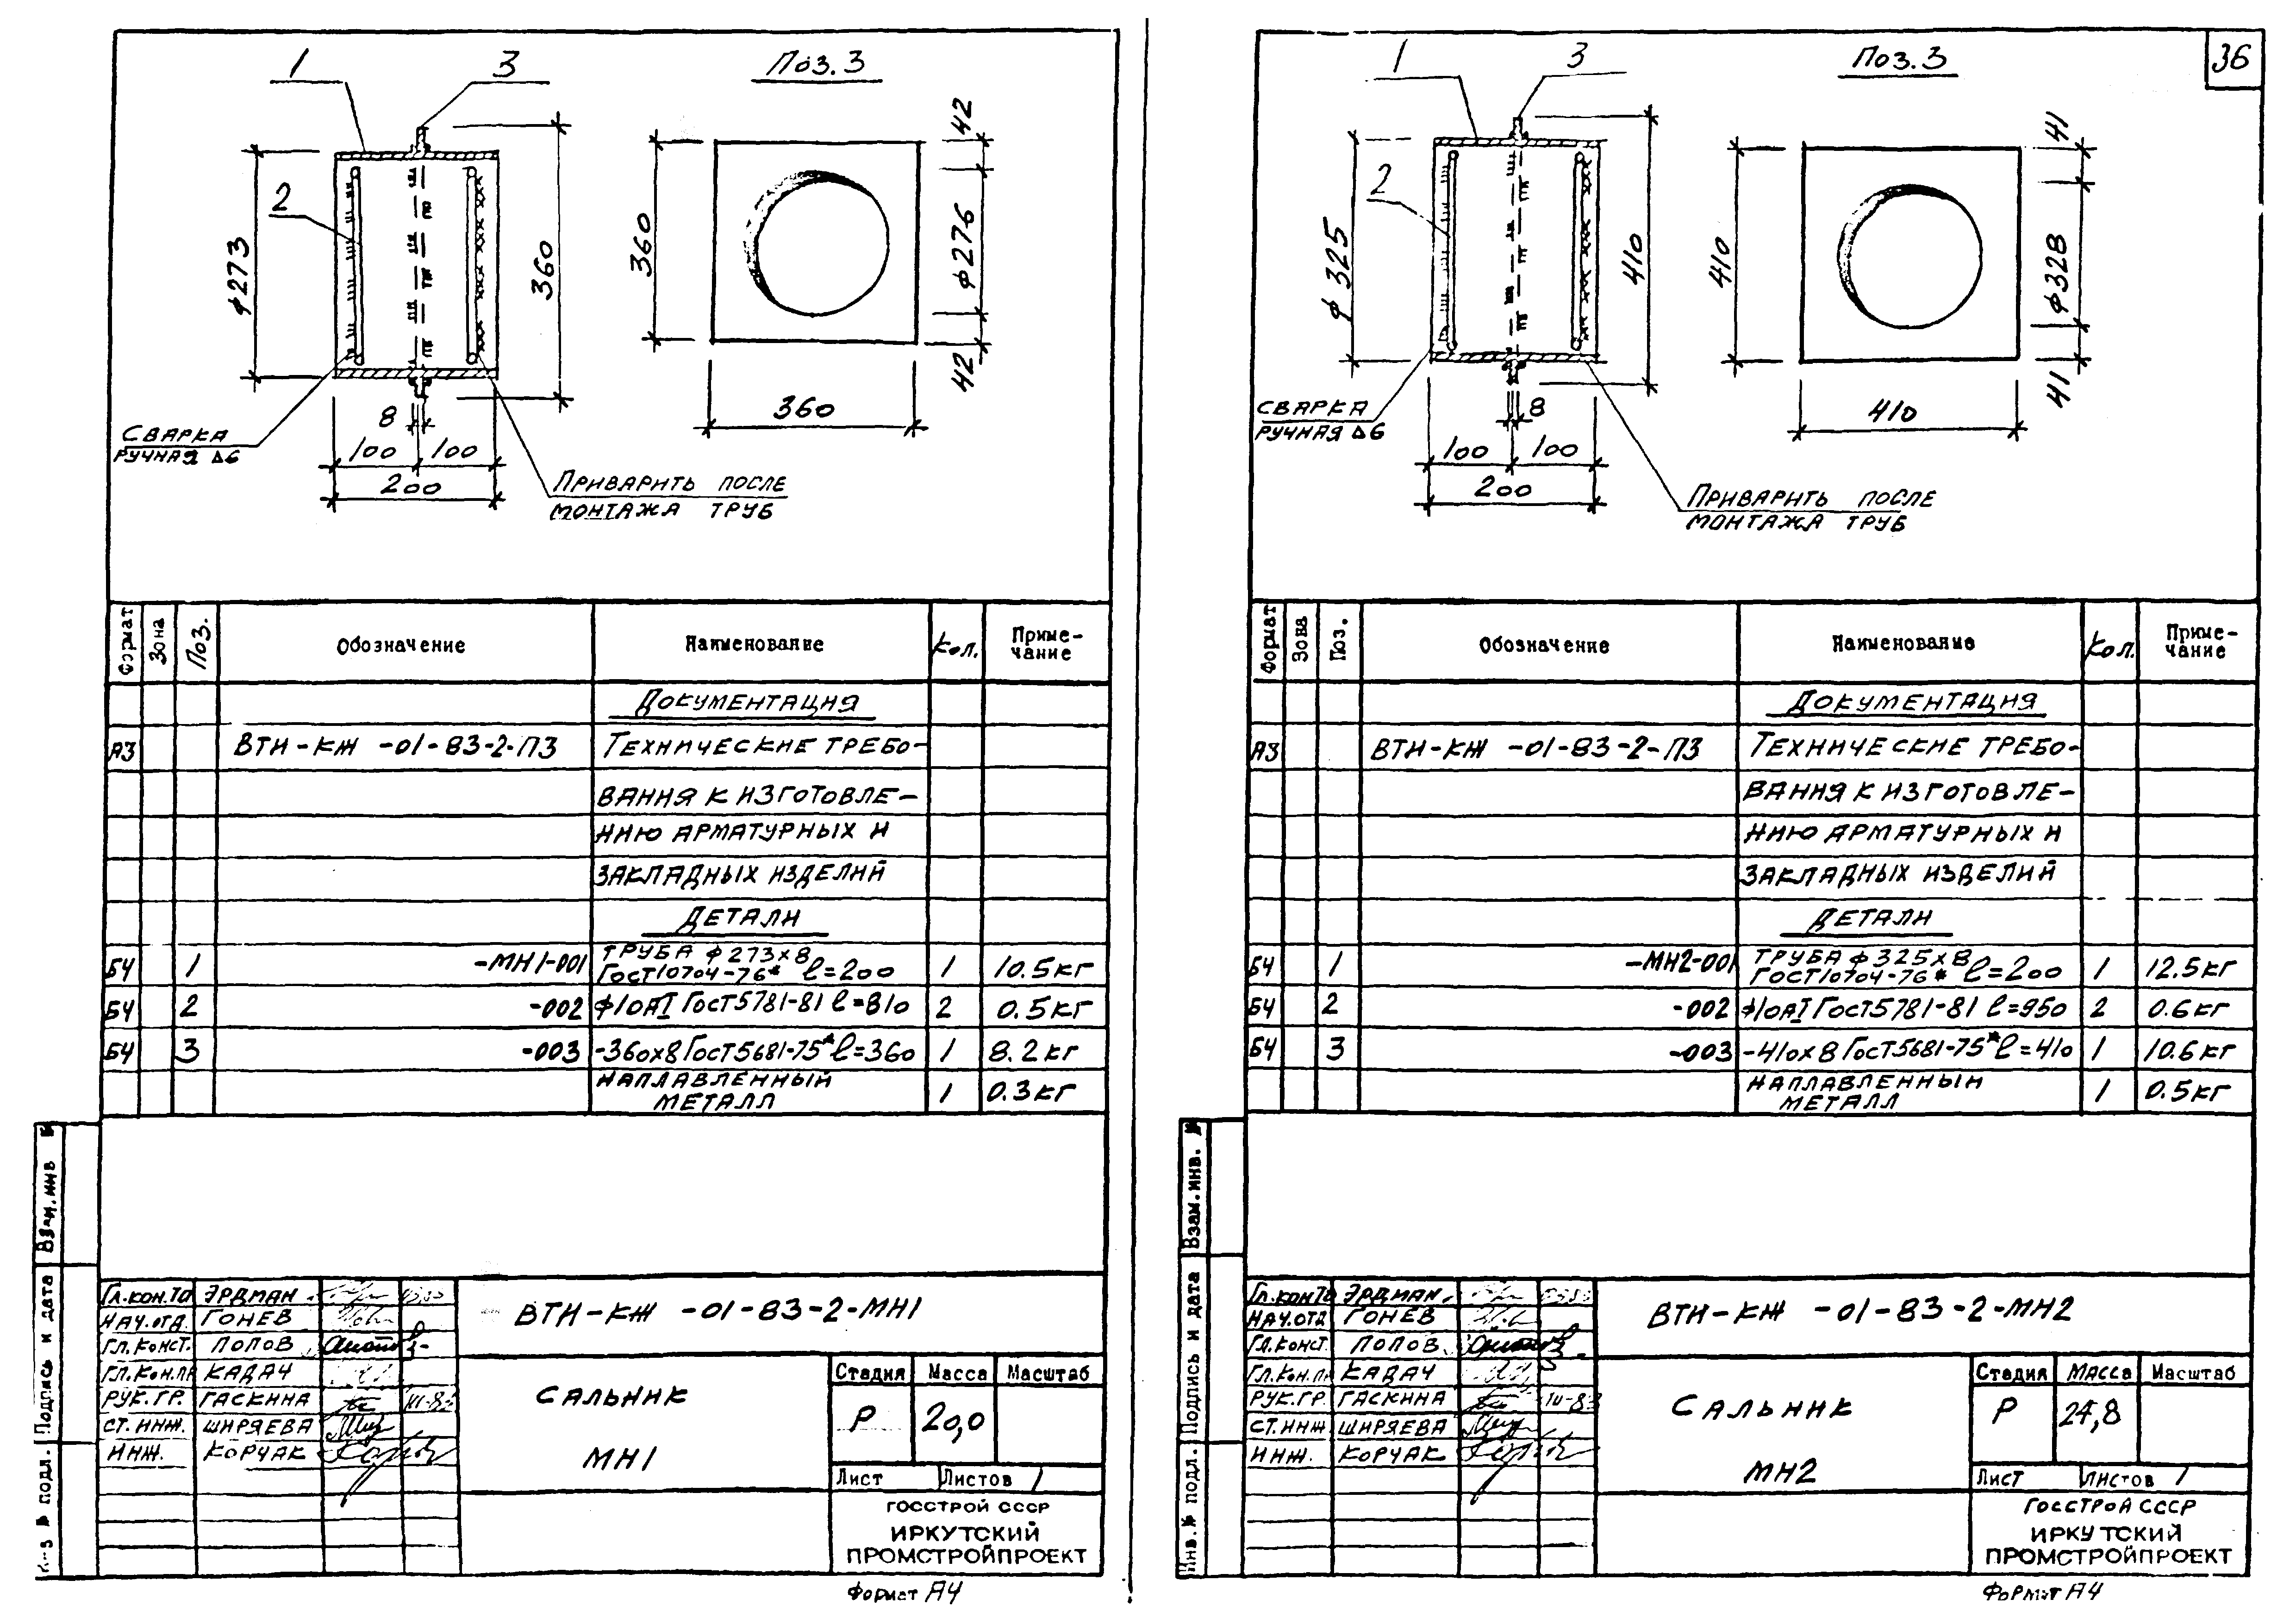 1
3
Поз.3
2
ф273
360
360
42
ф276
42
360
8
100
100
200
СВАРКА
РУЧНАЯ Δ6
ПРИВАРИТЬ ПОСЛЕ
МОНТАЖА ТРУБ
Формат
Зона
Поз.
Обозначение
Наименование
Кол.
Приме-
чание
ДОКУМЕНТАЦИЯ
А3 ВТИ-КЖ -01-83-2-ПЗ ТЕХНИЧЕСКИЕ ТРЕБО-
ВАНИЯ К ИЗГОТОВЛЕ-
НИЮ АРМАТУРНЫХ И
ЗАКЛАДНЫХ ИЗДЕЛИЙ
ДЕТАЛИ
БЧ 1 -МН1-001 ТРУБА ф273х8
ГОСТ10704-76* ℓ=200 1 10.5кг
БЧ 2 -002 ф10АI ГОСТ5781-81 ℓ=810 2 0.5кг
БЧ 3 -003 -360х8 ГОСТ5681-75* ℓ=360 1 8.2кг
НАПЛАВЛЕННЫЙ
МЕТАЛЛ 1 0.3кг
Взам.инв №
Подпись и дата
№ подл.
ГЛ.КОН.ТО ЭРДМАН
НАЧ.ОТД. ГОНЕВ
ГЛ.КОНСТ. ПОПОВ
ГЛ.КОН.ПР КАДАЧ
РУК.ГР. ГАСКИНА III-83
СТ.ИНЖ. ШИРЯЕВА
ИНЖ. КОРЧАК
ВТИ-КЖ -01-83-2-МН1
САЛЬНИК
МН1
Стадия Масса Масштаб
Р 20,0
Лист Листов 1
ГОССТРОЙ СССР
ИРКУТСКИЙ
ПРОМСТРОЙПРОЕКТ
Формат А4
36
1
3
Поз.3
2
ф325
410
410
41
ф328
41
410
8
100
100
200
СВАРКА
РУЧНАЯ Δ6
ПРИВАРИТЬ ПОСЛЕ
МОНТАЖА ТРУБ
Формат
Зона
Поз.
Обозначение
Наименование
Кол.
Приме-
чание
ДОКУМЕНТАЦИЯ
А3 ВТИ-КЖ -01-83-2-ПЗ ТЕХНИЧЕСКИЕ ТРЕБО-
ВАНИЯ К ИЗГОТОВЛЕ-
НИЮ АРМАТУРНЫХ И
ЗАКЛАДНЫХ ИЗДЕЛИЙ
ДЕТАЛИ
БЧ 1 -МН2-001 ТРУБА ф325х8
ГОСТ10704-76* ℓ=200 1 12.5кг
БЧ 2 -002 ф10АI ГОСТ5781-81 ℓ=950 2 0.6кг
БЧ 3 -003 -410х8 ГОСТ5681-75* ℓ=410 1 10.6кг
НАПЛАВЛЕННЫЙ
МЕТАЛЛ 1 0.5кг
Взам.инв. №
Подпись и дата
Инв.№ подл.
ГЛ.КОН.ТО ЭРДМАН
НАЧ.ОТД ГОНЕВ
ГЛ.КОНСТ. ПОПОВ
ГЛ.КОН.ПР КАДАЧ
РУК.ГР. ГАСКИНА III-83
СТ.ИНЖ ШИРЯЕВА
ИНЖ. КОРЧАК
ВТИ-КЖ -01-83-2-МН2
САЛЬНИК
МН2
Стадия Масса Масштаб
Р 24,8
Лист Листов 1
ГОССТРОЙ СССР
ИРКУТСКИЙ
ПРОМСТРОЙПРОЕКТ
Формат А4